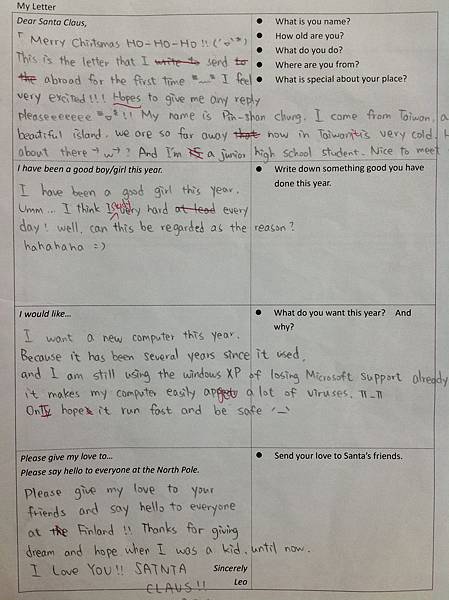 My Letter
Dear Santa Claus,
● What is you name?
● How old are you?
● What do you do?
● Where are you from?
● What is special about your place?
「 Merry Chirtsmas HO-HO-HO !!
This is the letter that I write to send to
the abroad for the first time I feel
very excited!!! Hopes to give me any reply
pleaseeeeeee !! My name is Pin-shan chung. I come from Taiwan, a
beautiful island. we are so far away that now in Taiwan is very cold. H
about there →w→? And I'm a junior high school student. Nice to meet
I have been a good boy/girl this year.
● Write down something good you have done this year.
I have been a good girl this year.
Umm... I think I very hard at lead every
day! well, can this be regarded as the reason?
hahahaha =)
I would like...
● What do you want this year? And why?
I want a new computer this year.
Because it has been several years since it used,
and I am still using the windows XP of losing Microsoft support already
it makes my computer easily get a lot of viruses. π_π
Only hope it run fast and be safe '_'
Please give my love to...
Please say hello to everyone at the North Pole.
● Send your love to Santa's friends.
Please give my love to your
friends and say hello to everyone
at the Finland !! Thanks for giving
dream and hope when I was a kid, until now.
I Love YOU!! SATNTA
CLAUS!!
Sincerely
Leo